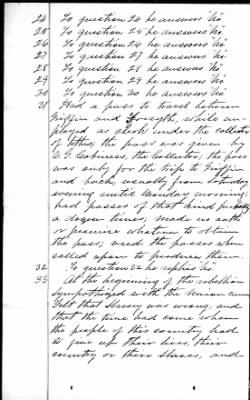 24 To question 24 he answers "No".
25 To question 25 he answers "No".
26 To question 26 he answers "No".
27 To question 27 he answers "No".
28 To question 28 he answers "No".
29 To question 29 he answers "No".
30 To question 30 he answers "No".
31 Had a pass to travel between
Griffin and Forsyth, while em-
ployed as clerk under the collector
of tithes, the pass was given by
the Collector; the pass
was only for the trip to Griffin
and back, usually from Saturday
evening until Monday morning,
had passes of that kind probably
a dozen times; made no oath
or promise whatever to obtain
the pass; used the passes when
called upon to produce them.
32 To question 32 he replies "No".
33 At the beginning of the rebellion
sympathized with the Union cause
Felt that slavery was wrong, and
that the time had come when
the people of this country had
to give up their lives, their
country or their slaves, and